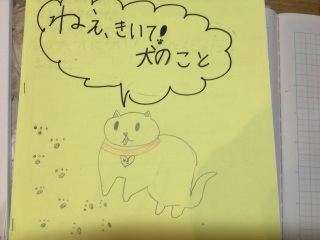 ねえ、きいて!
犬のこと